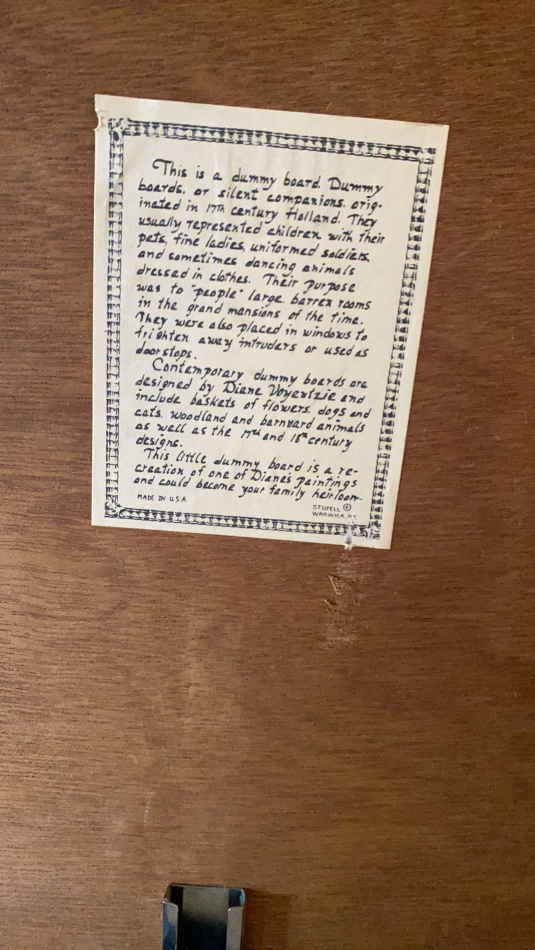 This is a dummy board. Dummy
boards, or silent companions, orig-
inated in 17th century Holland. They
usually represented children with their
pets, fine ladies, uniformed soldiers,
and sometimes dancing animals
dressed in clothes. Their purpose
was to "people" large barren rooms
in the grand mansions of the time.
They were also placed in windows to
frighten away intruders or used as
doorstops.
Contemporary dummy boards are
designed by Diane Voyentzie and
include baskets of flowers, dogs and
cats, woodland and barnyard animals
as well as the 17th and 18th century
designs.
This little dummy board is a re-
creation of one of Diane's paintings
and could become your family heirloom.
MADE IN U.S.A.
STUPELL ©
WARWICK, R.I.